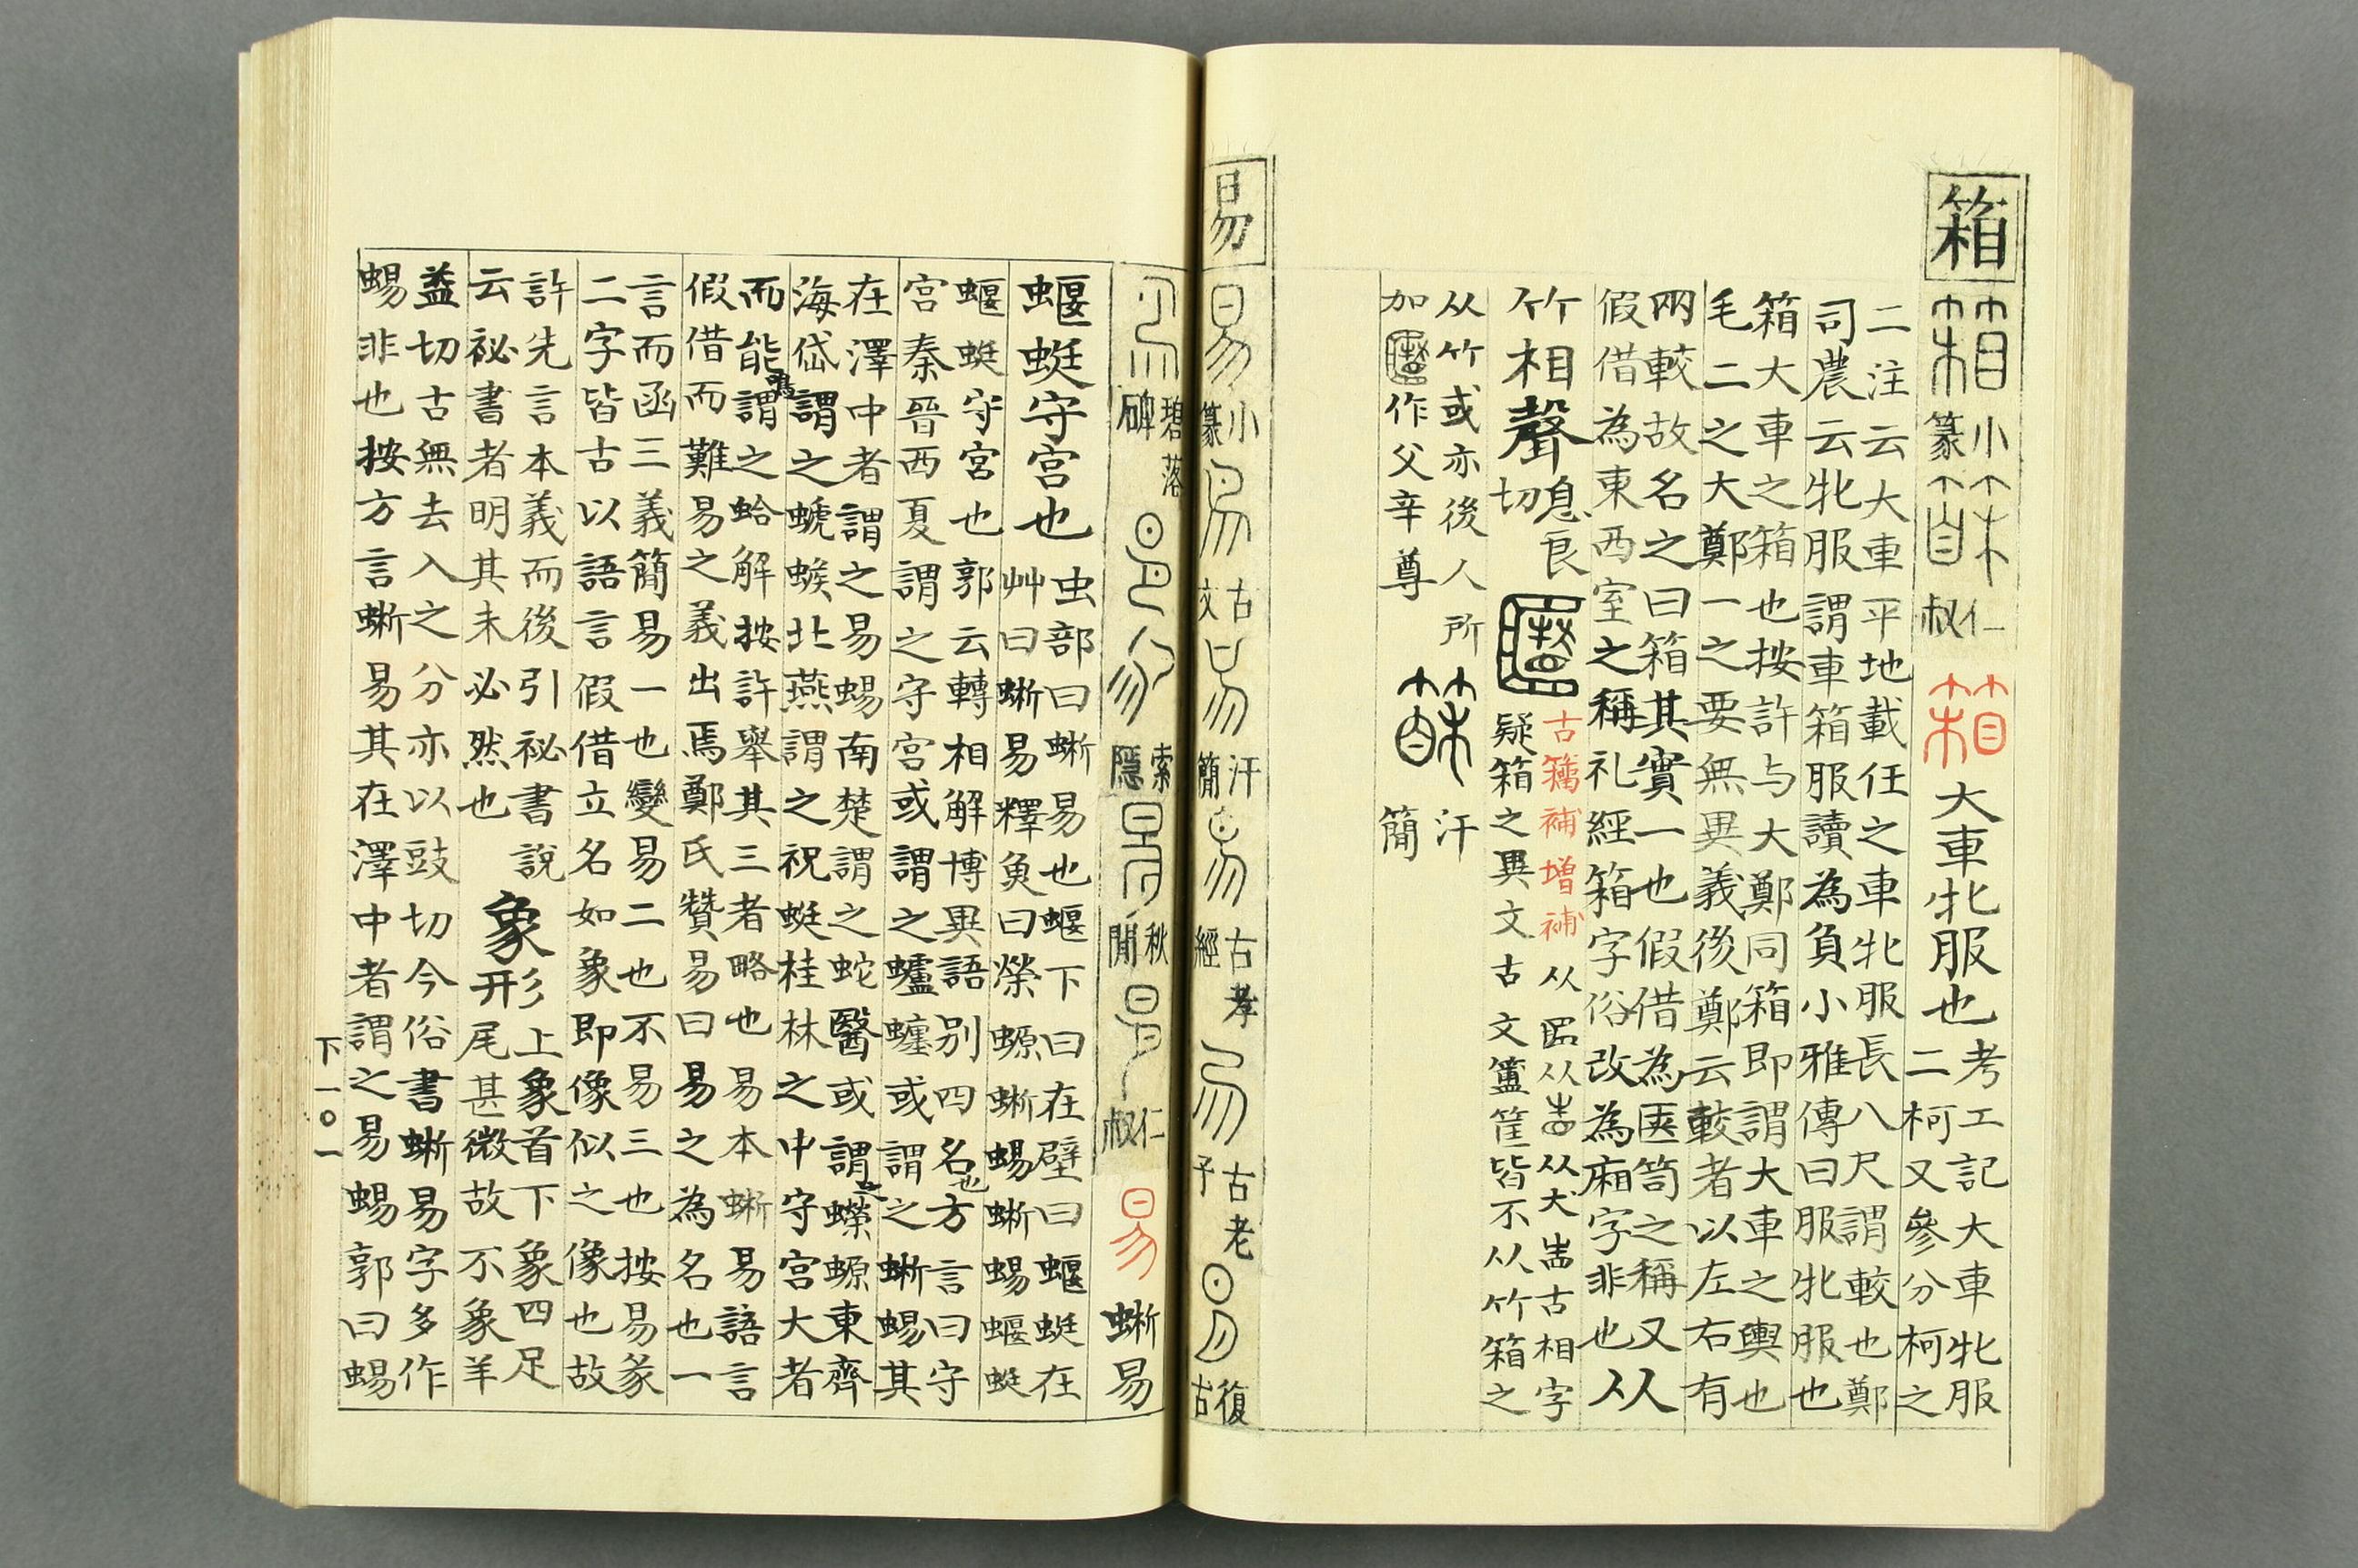 箱
小篆
仁叔
大車牝服也
考工記大車牝服
二柯又參分柯之
二注云大車平地載任之車牝服長八尺謂較也鄭
司農云牝服謂車箱服讀為負小雅傳曰服牝服也
箱大車之箱也按許与大鄭同箱即謂大車之輿也
毛二之大鄭一之要無異義後鄭云較者以左右有
兩較故名之曰箱其實一也假借為匧笥之稱又
假借為東西室之稱礼經箱字俗改為廂字非也
从竹相聲
息良切
古籀補增補
从竹或亦後人所
加
作父辛尊
汗簡
易
小篆
古文
汗簡
古孝經
古老子
復古
碧落碑
索隱
秋閒
仁叔
蜥易
蝘蜓守宮也
虫部曰蜥易也蝘下曰在壁曰蝘蜓在
艸曰蜥易釋魚曰榮螈蜥蜴蜥蜴蝘蜓
蝘蜓守宮也郭云轉相解博異語別四名也方言曰守
宮秦晉西夏謂之守宮或謂之蠦𧔥或謂之蜥蜴其
在澤中者謂之易蜴南楚謂之蛇醫或謂之蠑螈東齊
海岱謂之螔𧍪北燕謂之祝蜓桂林之中守宮大者
而能鳴謂之蛤解按許舉其三者略也易本蜥易語言
假借而難易之義出焉鄭氏贊易曰易之為名也一
言而函三義簡易一也變易二也不易三也按易彖
二字皆古以語言假借立名如象即像似之像也故
許先言本義而後引祕書說
云祕書者明其未必然也
象形
上象首下象四足
尾甚微故不象羊
益切古無去入之分亦以豉切今俗書蜥易字多作
蜴非也按方言蜥易其在澤中者謂之易蜴郭曰蜴
下一〇一